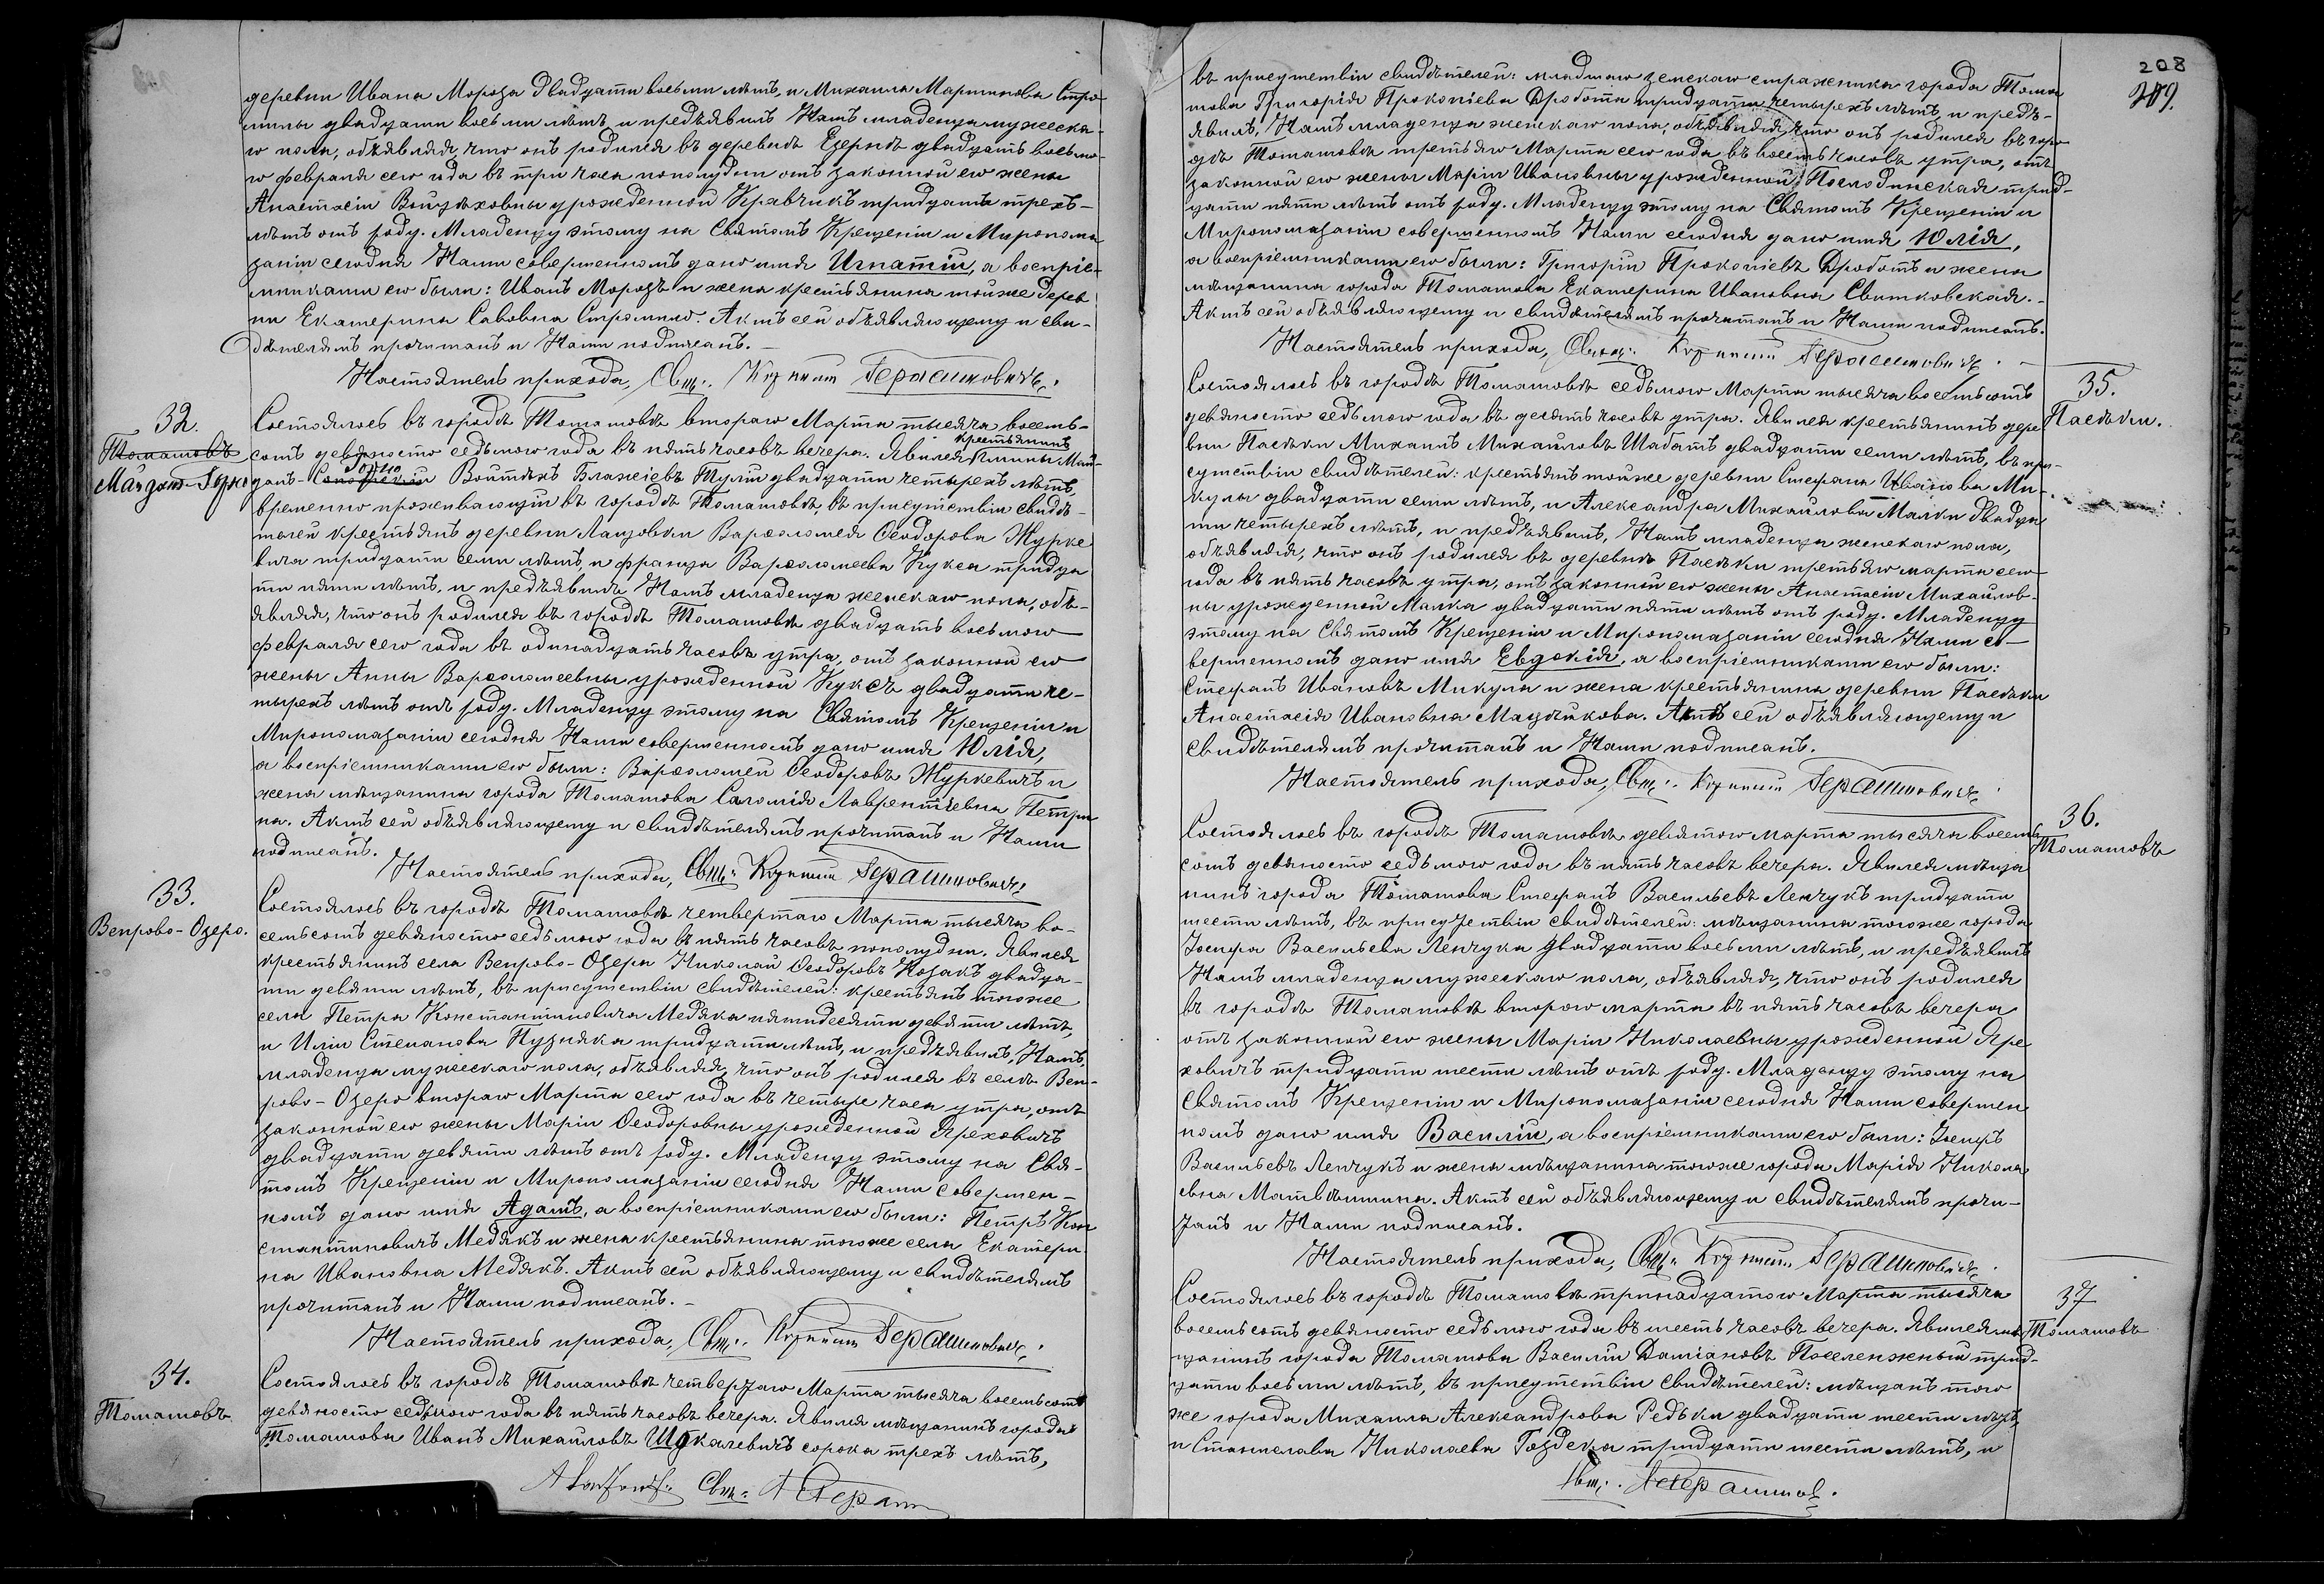 деревни Ивана Мороза двадцати восьми лѣтъ, и Михаила Мартинова Стро-
мины двадцати восьми лѣтъ и предъявилъ Намъ младенца мужеска-
го пола, объявляя, что онъ родился въ деревнѣ Езернѣ двадцать восьмо-
го февраля сего года въ три часа пополудни отъ законной его жены
Анастасіи Войцѣховны урожденной Кравчикъ тридцати трехъ-
лѣтъ отъ роду. Младенцу этому на Святомъ Крещеніи и Миропома
заніи сегодня Нами совершенномъ дано имя Игнатій, а воспріе-
мниками его были: Иванъ Морозъ и жена крестьянина тойже дерев
ни Екатерина Савовна Стромило. Актъ сей объявляющему и сви-
дѣтелямъ прочитанъ и Нами подписанъ.-
Настоятель прихода, Свщ:.
32.
Томашовъ
Майданъ-Горно
Состоялось въ городѣ Томашовѣ втораго Марта тысяча восемь-
сотъ девяносто седьмого года въ пять часовъ вечера. Явился крестьянинъ гмины Май-
данъ- Войтѣхъ Блажіевъ Тулш двадцати четырехъ лѣтъ,
временно проживающій въ городѣ Томашовѣ, въ присутствіи свидѣ-
телей крестьянъ деревни Лащовки Варѳоломея Ѳеодорова Журке
вича тридцати семи лѣтъ, и Франца Варѳоломеева Кукса тридца
ти пяти лѣтъ, и предъявилъ Намъ младенца женскаго пола, объ-
являя, что онъ родился въ городѣ Томашовѣ двадцать восьмого
февраля сего года въ одинадцать часовъ утра, отъ законной его
жены Анны Варѳоломеевны урожденной Куксъ двадцати че-
тырехъ лѣтъ отъ роду. Младенцу этому на Святомъ Крещеніи и
Миропомазаніи сегодня Нами совершенномъ дано имя Юлія,
а воспріемниками его были: Варѳоломей Ѳеодоровъ Журкевичъ и
жена мѣщанина города Томашова Саломія Лаврентіевна Петри
на. Актъ сей объявляющему и свидѣтелямъ прочитанъ и Нами
подписанъ.
Настоятель прихода, Свщ:.
33.
Вепрово-Озеро.
Состоялось въ городѣ Томашовѣ четвертаго Марта тысяча во-
семьсотъ девяносто седьмого года въ пять часовъ пополудни. Явился
крестьянинъ села Вепрово-Озера Николай Ѳеодоровъ Козакъ двадца-
ти девяти лѣтъ, въ присутствіи свидѣтелей: крестьянъ тогоже
села Петра Константиновича Медяка пятидесяти девяти лѣтъ,
и Иліи Степанова Пузняка тридцати лѣтъ, и предъявилъ, Намъ,
младенца мужескаго пола, объявляя, что онъ родился въ селѣ Веп-
рово-Озеро втораго Марта сего года въ четыре часа утра, отъ
законной его жены Маріи Ѳеодоровны урожденной Яреховичъ
двадцати девяти лѣтъ отъ роду. Младенцу этому на Свя-
томъ Крещеніи и Миропомазаніи сегодня Нами совершен-
номъ дано имя Адамъ, а воспріемниками его были: Петръ Кон
стантиновичъ Медякъ и жена крестьянина тогоже села Екатери
на Ивановна Медякъ. Актъ сей объявляющему и свидѣтелямъ
прочитанъ и Нами подписанъ.-
Настоятель прихода, Свщ:.
34.
Томашовъ
Состоялось въ городѣ Томашовѣ четвертаго Марта тысяча восемьсотъ
девяносто седьмого года въ пять часовъ вечера. Явился мѣщанинъ города
Томашова Иванъ Михайловъ Шукалевичъ сорока трехъ лѣтъ,
208
въ присутствіи свидѣтелей: младшаго земскаго стражника города Тома
шова Григорія Прокопіева Дробота тридцати четырехъ лѣтъ, и предъ-
явилъ, Намъ младенца женскаго пола, объявляя, что онъ родился въ горо
дѣ Томашовѣ третьяго Марта сего года въ восемь часовъ утра, отъ
законной его жены Маріи Ивановны урожденной Послодинская трид-
цати пяти лѣтъ отъ роду. Младенцу этому на Святомъ Крещеніи и
Миропомазаніи совершенномъ Нами сегодня дано имя Юлія,
а воспріемниками его были: Григорій Прокопіевъ Дроботъ и жена
мѣщанина города Томашова Екатерина Ивановна Свитковская.-
Актъ сей объявляющему и свидѣтелямъ прочитанъ и Нами подписанъ.
Настоятель прихода, Свщ:.
35.
Пасѣки.
Состоялось въ городѣ Томашовѣ седьмого Марта тысяча восемьсотъ
девяносто седьмого года въ десять часовъ утра. Явился крестьянинъ дере
вни Пасѣки Михаилъ Михайловъ Шабатъ двадцати семи лѣтъ, въ при-
сутствіи свидѣтелей: крестьянъ тойже деревни Стефана Иванова Ми-
кулы двадцати семи лѣтъ, и Александра Михайлова Малки двадца
ти четырехъ лѣтъ, и предъявилъ, Намъ младенца женскаго пола,
объявляя, что онъ родился въ деревнѣ Пасѣки третьяго марта сего
года въ пять часовъ утра, отъ законной его жены Анастасіи Михайлов-
ны урожденной Малка двадцати пяти лѣтъ отъ роду. Младенцу
этому на Святомъ Крещеніи и Миропомазаніи сегодня Нами со-
вершенномъ дано имя Евдокія, а воспріемниками его были:
Стефанъ Ивановъ Микула и жена крестьянина деревни Пасѣки
Анастасія Ивановна Мацѣйкова. Актъ сей объявляющему и
свидѣтелямъ прочитанъ и Нами подписанъ.
Настоятель прихода, Свщ:.
36.
Томашовъ
Состоялось въ городѣ Томашовѣ девятого марта тысяча восемь
сотъ девяносто седьмого года въ пять часовъ вечера. Явился мѣща
нинъ города Томашова Стефанъ Васильевъ Ленчукъ тридцати
шести лѣтъ, въ присутствіи свидѣтелей: мѣщанина тогоже города
Іосифа Васильева Ленчука двадцати восьми лѣтъ, и предъявилъ
Намъ младенца мужескаго пола, объявляя, что онъ родился
въ городѣ Томашовѣ второго марта въ пять часовъ вечера
отъ законной его жены Маріи Николаевны урожденной Яре
ховичъ тридцати шести лѣтъ отъ роду. Младенцу этому на
Святомъ Крещеніи и Миропомазаніи сегодня Нами совершен
номъ дано имя Василій, а воспріемниками его были: Іосифъ
Васильевъ Ленчукъ и жена мѣщанина тогоже города Марія Никола
евна Матвѣишина. Актъ сей объявляющему и свидѣтелямъ прочи-
танъ и Нами подписанъ.
Настоятель прихода, Свщ:.
37
Томашовъ
Состоялось въ городѣ Томашовѣ тринадцатого Марта тысяча
восемьсотъ девяносто седьмого года въ шесть часовъ вечера. Явился мѣ
щанинъ города Томашова Василій Даміановъ Поселенжный трид-
цати восьми лѣтъ, въ присутствіи свидѣтелей: мѣщанъ того
же города Михаила Александрова Редьки двадцати шести лѣтъ
и Станислава Николаева Гоздека тридцати шести лѣтъ, и